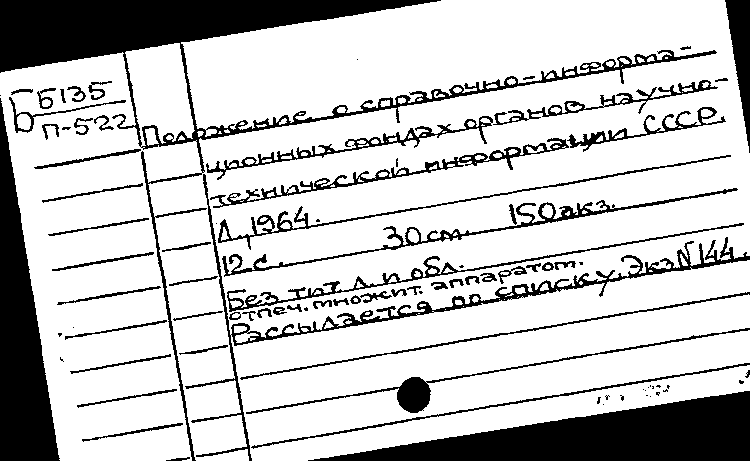 Б Б135
П-522
Положение о справочно-информа-
ционных фондах органов научно-
технической информации СССР.
Л., 1964.
12 с. 30 см. 150 экз.
Без тит. л. и обл.
отпеч. множит. аппаратом.
Рассылается по списку. Экз N 144.